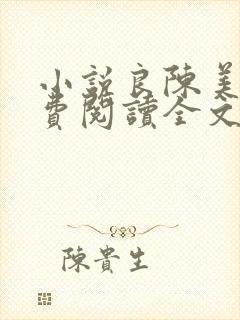 小説良陳美
費閱讀全文
陳貴生